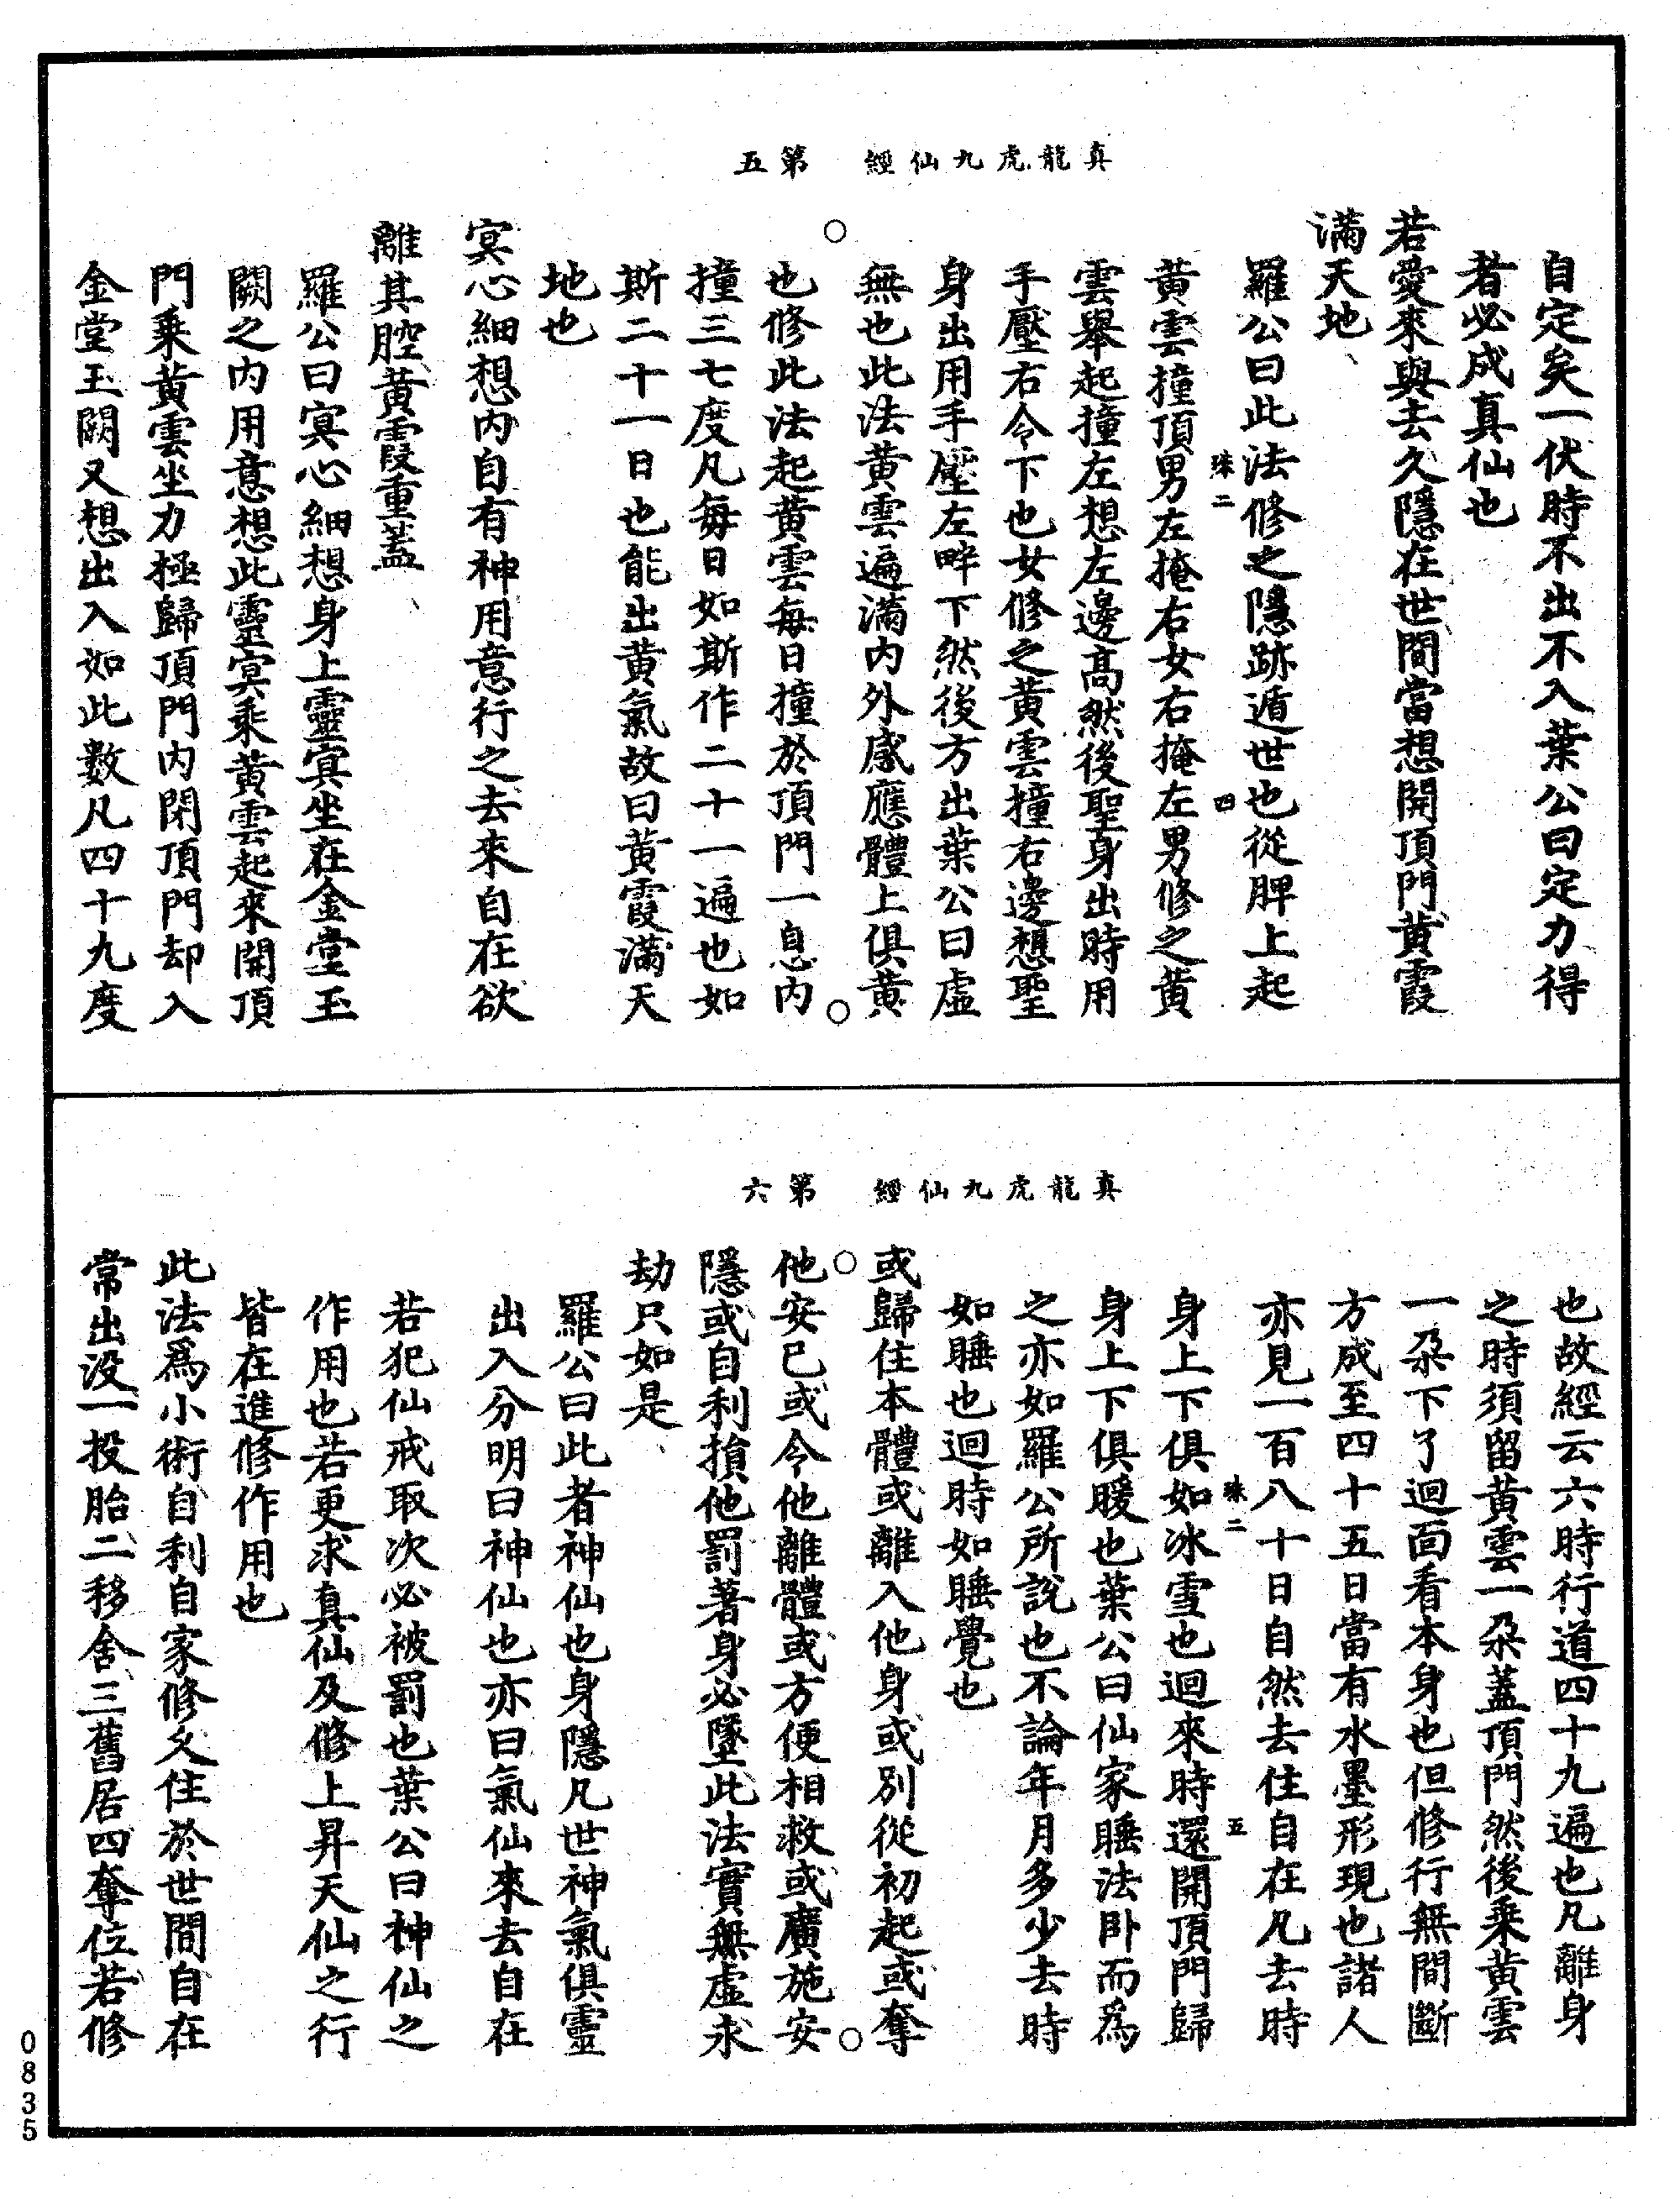 真龍虎九仙經　第五
自定矣一伏時不出不入葉公曰定力得
者必成真仙也
若愛來與去久隱在世間當想開頂門黃霞
滿天地
羅公曰此法修之隱跡遁世也從脾上起
珠二　四
黃雲撞頂男左掩右女右掩左男修之黃
雲舉起撞左想左邊高然後聖身出時用
手壓右令下也女修之黃雲撞右邊想聖
身出用手壓左畔下然後方出葉公曰虛
無也此法黃雲遍滿內外感應體上俱黃
也修此法起黃雲每日撞於頂門一息內
撞三七度凡每日如斯作二十一遍也如
斯二十一日也能出黃氣故曰黃霞滿天
地也
冥心細想內自有神用意行之去來自在欲
離其腔黃霞重蓋
羅公曰冥心細想身上靈冥坐在金堂玉
闕之內用意想此靈冥乘黃雲起來開頂
門乘黃雲坐力極歸頂門內閉頂門却入
金堂玉闕又想出入如此數凡四十九度
真龍虎九仙經　第六
也故經云六時行道四十九遍也凡離身
之時須留黃雲一朵蓋頂門然後乘黃雲
一朵下了迴面看本身也但修行無間斷
方成至四十五日當有水墨形現也諸人
亦見一百八十日自然去住自在凡去時
珠二　五
身上下俱如冰雪也迴來時還開頂門歸
身上下俱暖也葉公曰仙家睡法卧而為
之亦如羅公所說也不論年月多少去時
如睡也迴時如睡覺也
或歸住本體或離入他身或別從初起或奪
他安已或令他離體或方便相救或廣施安
隱或自利損他罰著身必墜此法實無虛永
劫只如是
羅公曰此者神仙也身隱凡世神氣俱靈
出入分明曰神仙也亦曰氣仙來去自在
若犯仙戒取次必被罰也葉公曰神仙之
作用也若更求真仙及修上昇天仙之行
皆在進修作用也
此法爲小術自利自家修久住於世間自在
常出没一投胎二移舍三舊居四奪位若修
0835